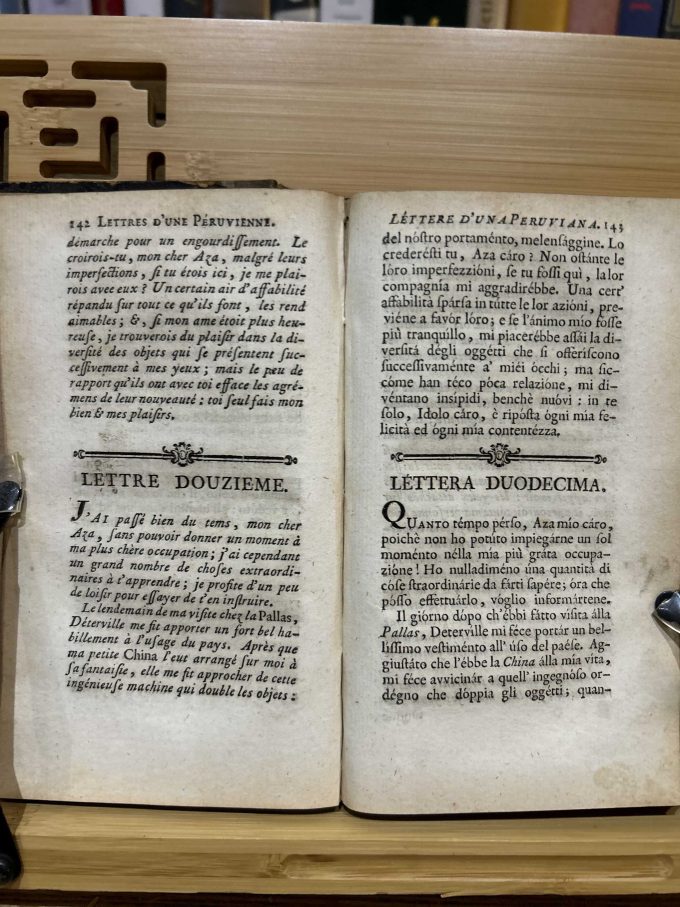 142 LETTRES D'UNE PÉRUVIENNE.
démarche pour un engourdiſſement. Le
croirois-tu, mon cher Aza, malgré leurs
imperfections, ſi tu étois ici, je me plai-
rois avec eux? Un certain air d'affabilité
répandu ſur tout ce qu'ils font, les rend
aimables; &, ſi mon ame étoit plus heu-
reuſe, je trouverois du plaiſir dans la di-
verſité des objets qui ſe préſentent ſuc-
ceſſivement à mes yeux; mais le peu de
rapport qu'ils ont avec toi efface les agré-
mens de leur nouveauté: toi ſeul fais mon
bien & mes plaiſirs.
LETTRE DOUZIEME.
J'AI paſſé bien du tems, mon cher
Aza, ſans pouvoir donner un moment à
ma plus chère occupation; j'ai cependant
un grand nombre de choſes extraordi-
naires à t'apprendre; je profite d'un peu
de loiſir pour eſſayer de t'en inſtruire.
Le lendemain de ma viſite chez la Pallas,
Déterville me fit apporter un fort bel ha-
billement à l'uſage du pays. Après que
ma petite China l'eut arrangé ſur moi à
ſa fantaiſie, elle me fit approcher de cette
ingénieuſe machine qui double les objets:
LÉTTERE D'UNA PERUVIANA. 143
del nóſtro portaménto, melenſággine. Lo
crederéſti tu, Aza cáro? Non oſtánte le
lóro imperfezzióni, ſe tu foſſi quì, la lor
compagnía mi aggradirébbe. Una cert'
affabilità ſpárſa in tútte le lor azióni, pre-
viéne a favór lóro; e ſe l'ánimo mío foſſe
più tranquíllo, mi piacerébbe aſſái la di-
verſità dégli oggétti che ſi offeríſcono
ſucceſſivaménte a' miéi ócchi; ma ſic-
cóme han téco póca relazióne, mi di-
véntano inſípidi, benchè nuóvi: in te
ſolo, Idolo cáro, è ripóſta ógni mia fe-
licità ed ógni mia contentézza.
LÉTTERA DUODECIMA.
QUANTO témpo pérſo, Aza mío cáro,
poichè non ho potúto impiegárne un ſol
moménto nélla mia più gráta occupa-
zióne! Ho nulladiméno una quantità di
cóſe ſtraordinárie da fárti ſapére; óra che
póſſo effettuárlo, vóglio informártene.
Il giórno dópo ch'ébbi fátto víſita álla
Pallas, Deterville mi féce portár un bel-
líſſimo veſtiménto all' úſo del paéſe. Ag-
giuſtáto che l'ébbe la China álla mia víta,
mi féce avvicinár a quell' ingegnóſo or-
dégno che dóppia gli oggétti; quan-